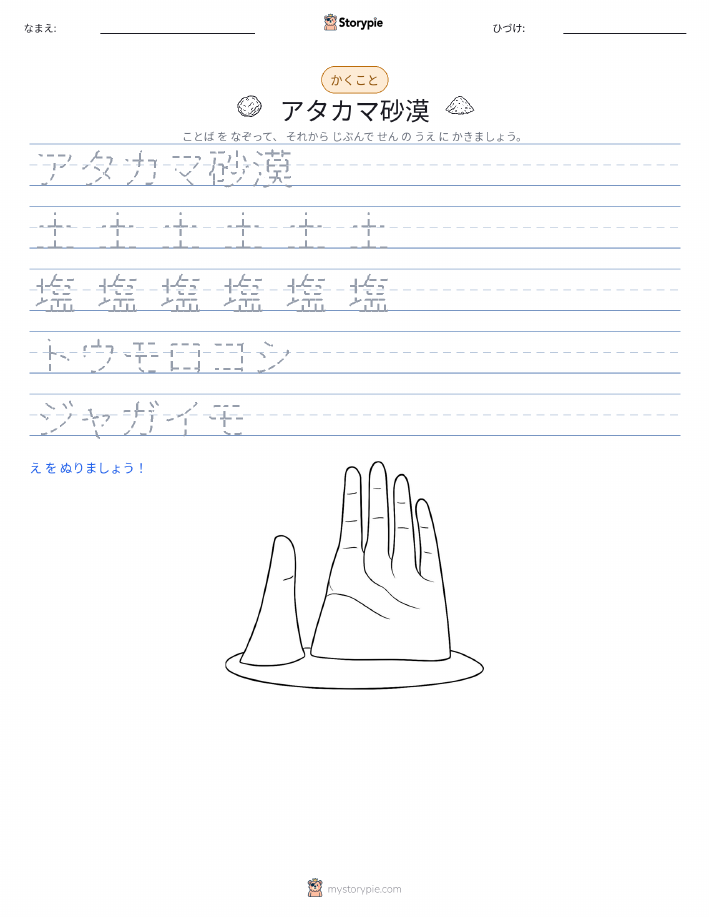 なまえ:
Storypie
ひづけ:
かくこと
アタカマ砂漠
ことば を なぞって、 それから じぶんで せん の うえ に かきましょう。
アタカマ砂漠
土 土 土 土 土 土
塩 塩 塩 塩 塩 塩
トウモロコシ
ジャガイモ
え を ぬりましょう！
mystorypie.com